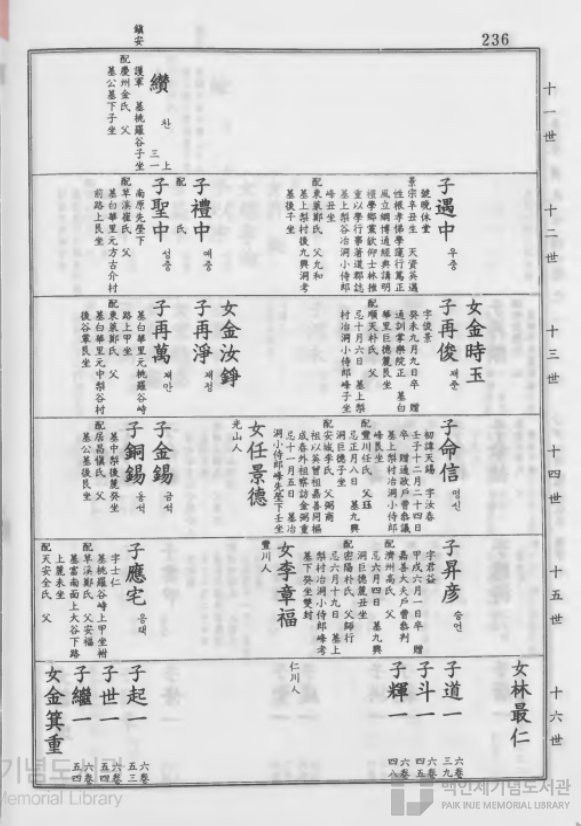 236
鎭安
十一世
纉 찬
三一上
護軍 墓桃羅谷子坐
配慶州金氏 父
墓公墓下子坐
十二世
子遇中 우중
號晩休堂
景宗辛丑生 天資英邁
性根孝悌學蘊行篤正
風立綱博通經典講明
禮學鄕黨欽仰士林推
重以學行事著道郡誌
墓上梨谷冶洞小侍郎
峰丑坐
配東萊鄭氏 父允和
墓上梨村後九興洞考
墓後子坐
子禮中 예중
配 氏
子聖中 성중
南原先塋下
配草溪崔氏 父
墓白華里元方古介村
前路上艮坐
十三世
女金時玉
子再俊 재준
字俊景
癸未九月九日卒 贈
通訓掌樂院正 墓白
華里巨德麓艮坐
配順天朴氏 父
忌十月六日 墓上梨
村冶洞小侍郎峰子坐
女金汝錚
子再淨 재정
子再萬 재만
墓白華里元桃羅谷峙
路上甲坐
配東萊鄭氏 父
墓白華里元中梨谷村
後谷軍艮坐
十四世
子命信 명신
初諱天錫 字汝春
壬子十二月二十四日
卒 贈通政戶曹參議
墓上梨村冶洞小侍郎
峰艮坐
配豐川任氏 父珏
忌正月八日 墓九興
洞巨德子坐
配安城李氏 父弼商
祖以英曾祖嘉善同樞
成春外祖察訪金弼重
忌十一月五日 墓冶
洞小侍郎峰先塋下壬坐
女任景德
光山人
子金錫 금석
子銅錫 동석
墓中梨後麓癸坐
配居昌愼氏 父
墓公墓後艮坐
十五世
子昇彦 승언
字君益
甲戌六月一日卒 贈
嘉善大夫戶曹參判
配濟州高氏 父
忌六月四日 墓九興
洞巨德麓丑坐
配密陽朴氏 父師行
忌六月十九日 墓上
梨村冶洞小侍郎峰考
墓下癸坐雙封
女李章福
豐川人
子應宅 응택
字士仁
墓桃羅谷峙上甲坐
配草溪鄭氏 父安福
墓富南面上大谷下路
上麓未坐
配天安全氏 父
十六世
女林最仁
子道一 六卷三九
子斗一 六卷四五
子輝一 六卷四八
仁川人
子起一 六卷五三
子世一 六卷五四
子繼一 六卷五四
女金箕重
기념도서관
Memorial Library
백인제기념도서관
PAIK INJE MEMORIAL LIBRARY